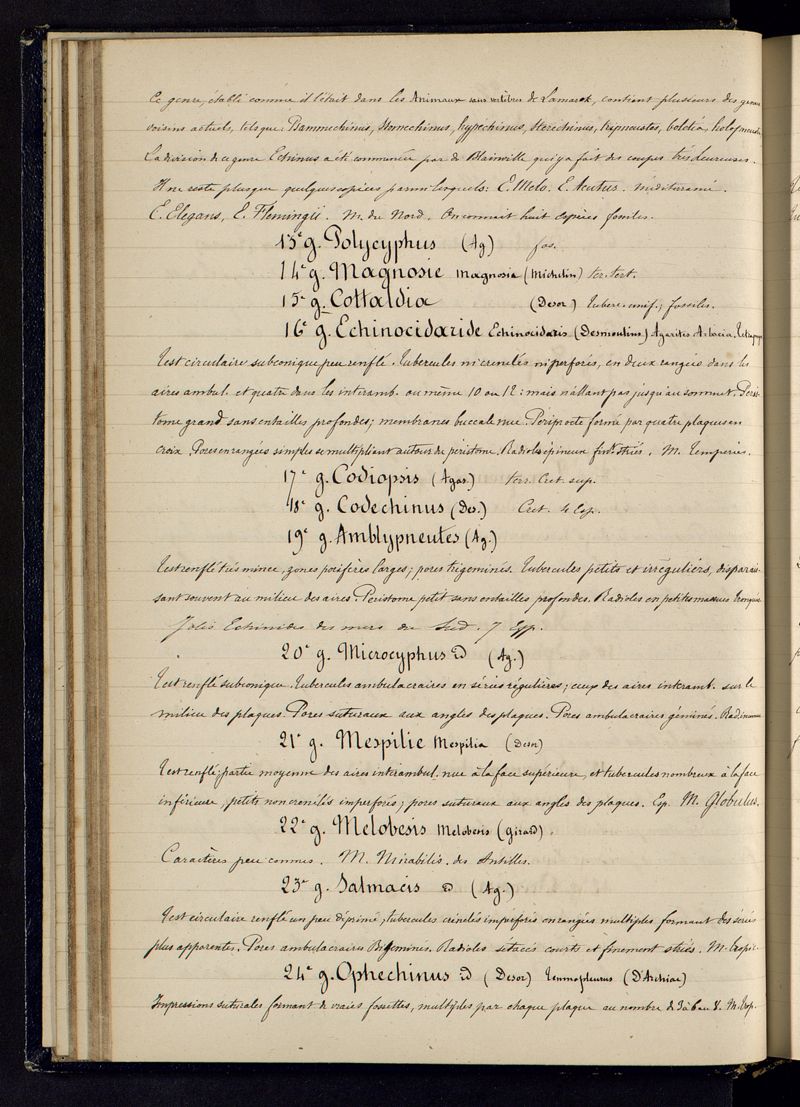 Ce genre, établi comme il l'était dans les Animaux sans vertèbres de Lamarck, contient plusieurs des genres
voisins actuels, tels que Psammechinus, Stomechinus, Hypechinus, Heliechinus, tripneustes, boletia, holopneustes
La division de ce genre Echinus a été commencée par de Blainville qui y a fait des coupes très heureuses.
Il ne reste plus que quelques espèces parmi lesquels: E. Melo. E. Acutus. Méditerrané.
E. Elegans, E. Flemingii. M. du Nord. On connait huit espèces fossiles.
13e g. Polycyphus (Ag) fos.
14e g. Magnosie Magnosia (Michelin) ter. tert.
15e g. Cottaldia (Desor) tuberc. unif.; fossiles.
16e g. Echinocidaride Echinocidaris (Desmoulins) Agarites Arbacia. Tetrapygus
Test circulaire subconique peu renflé. Tubercules ni crenelés ni perforés, en deux rangées dans les
aires ambul. et quatre dans les interamb. ou même 10 ou 12: mais n'allant pas jusqu'au sommet. Peris-
tome grand sans entailles profondes; membrane buccale nue. Périprocte formé par quatre plaques en
croix. Pores en rangées simples se multipliant autour du péristome. Radioles épineux fint striés. M. Temperies.
17e g. Codiopsis (Agas.) terr. Crét. sup.
18e g. Codechinus (Des.) Crét. 4 Esp.
19e g. Amblypneutes (Ag.)
Test renflé très mince, zones porifères larges; pores trigeminés. Tubercules petits et irréguliers, disparais-
sant souvent au milieu des aires. Peristome petit sans entailles profondes. Radioles en petites massues tronquées
Jolis Echinides des mers du Sud. 7 Esp.
20e g. Microcyphus id (Ag.)
Test renflé subconique. Tubercules ambulacraires en séries régulières; ceux des aires interamb. sur le
milieu des plaques. Pores suturaux aux angles des plaques. Pores ambulacraires géminés.
21e g. Mespilie Mespilia (Desor)
Test renflé; partie moyenne des aires interambul. nue à la face supérieure, et tubercules nombreux à la face
inférieure, petits non crenelés imperforés; pores suturaux aux angles des plaques. Esp. M. Globulus.
22e g. Melobesis Melobesis (Girard).
Caractères peu connus. M. Mirabilis. des Antilles.
23e g. Salmacis id (Ag.)
Test circulaire renflé un peu déprimé; tubercules crénelés imperforés en rangées multiples formant des séries
plus apparentes. Pores ambulacraires Bigeminés. Radioles sétacés courts et finement striés. M. tropic.
24e g. Opechinus id (Desor) Temnopleurus (D'Archiac)
Impressions suturales formant de vraies fossettes, multiples par chaque plaque au nombre de 3 à 6 ou 8. M. trop.